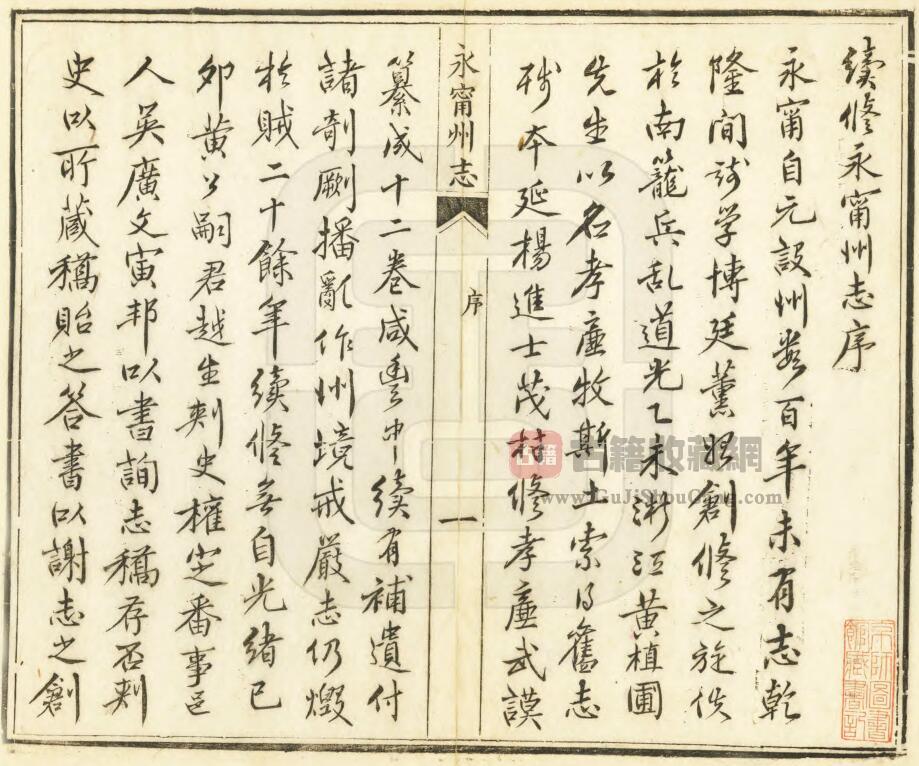 續修永甯州志序
永甯自元設州數百年未有志乾
隆間沙学博廷薰始創修之旋佚
於南籠兵乱道光乙未浙江黄植圃
先生以名孝廉牧斯土索得舊志
残本延楊進士茂材修孝廉武謨
永甯州志
序
一
纂成十二卷咸豐中續有補遺付
諸剞劂播亂作州境戒嚴志仍燬
於賊二十餘年續修無自光緒己
卯黄公嗣君越生刺史權定番事邑
人吳廣文寅邦以書詢志稿存否刺
史以所蔵稿貽之答書以謝志之創
古籍
古籍收藏網
www.GuJiShouCang.com